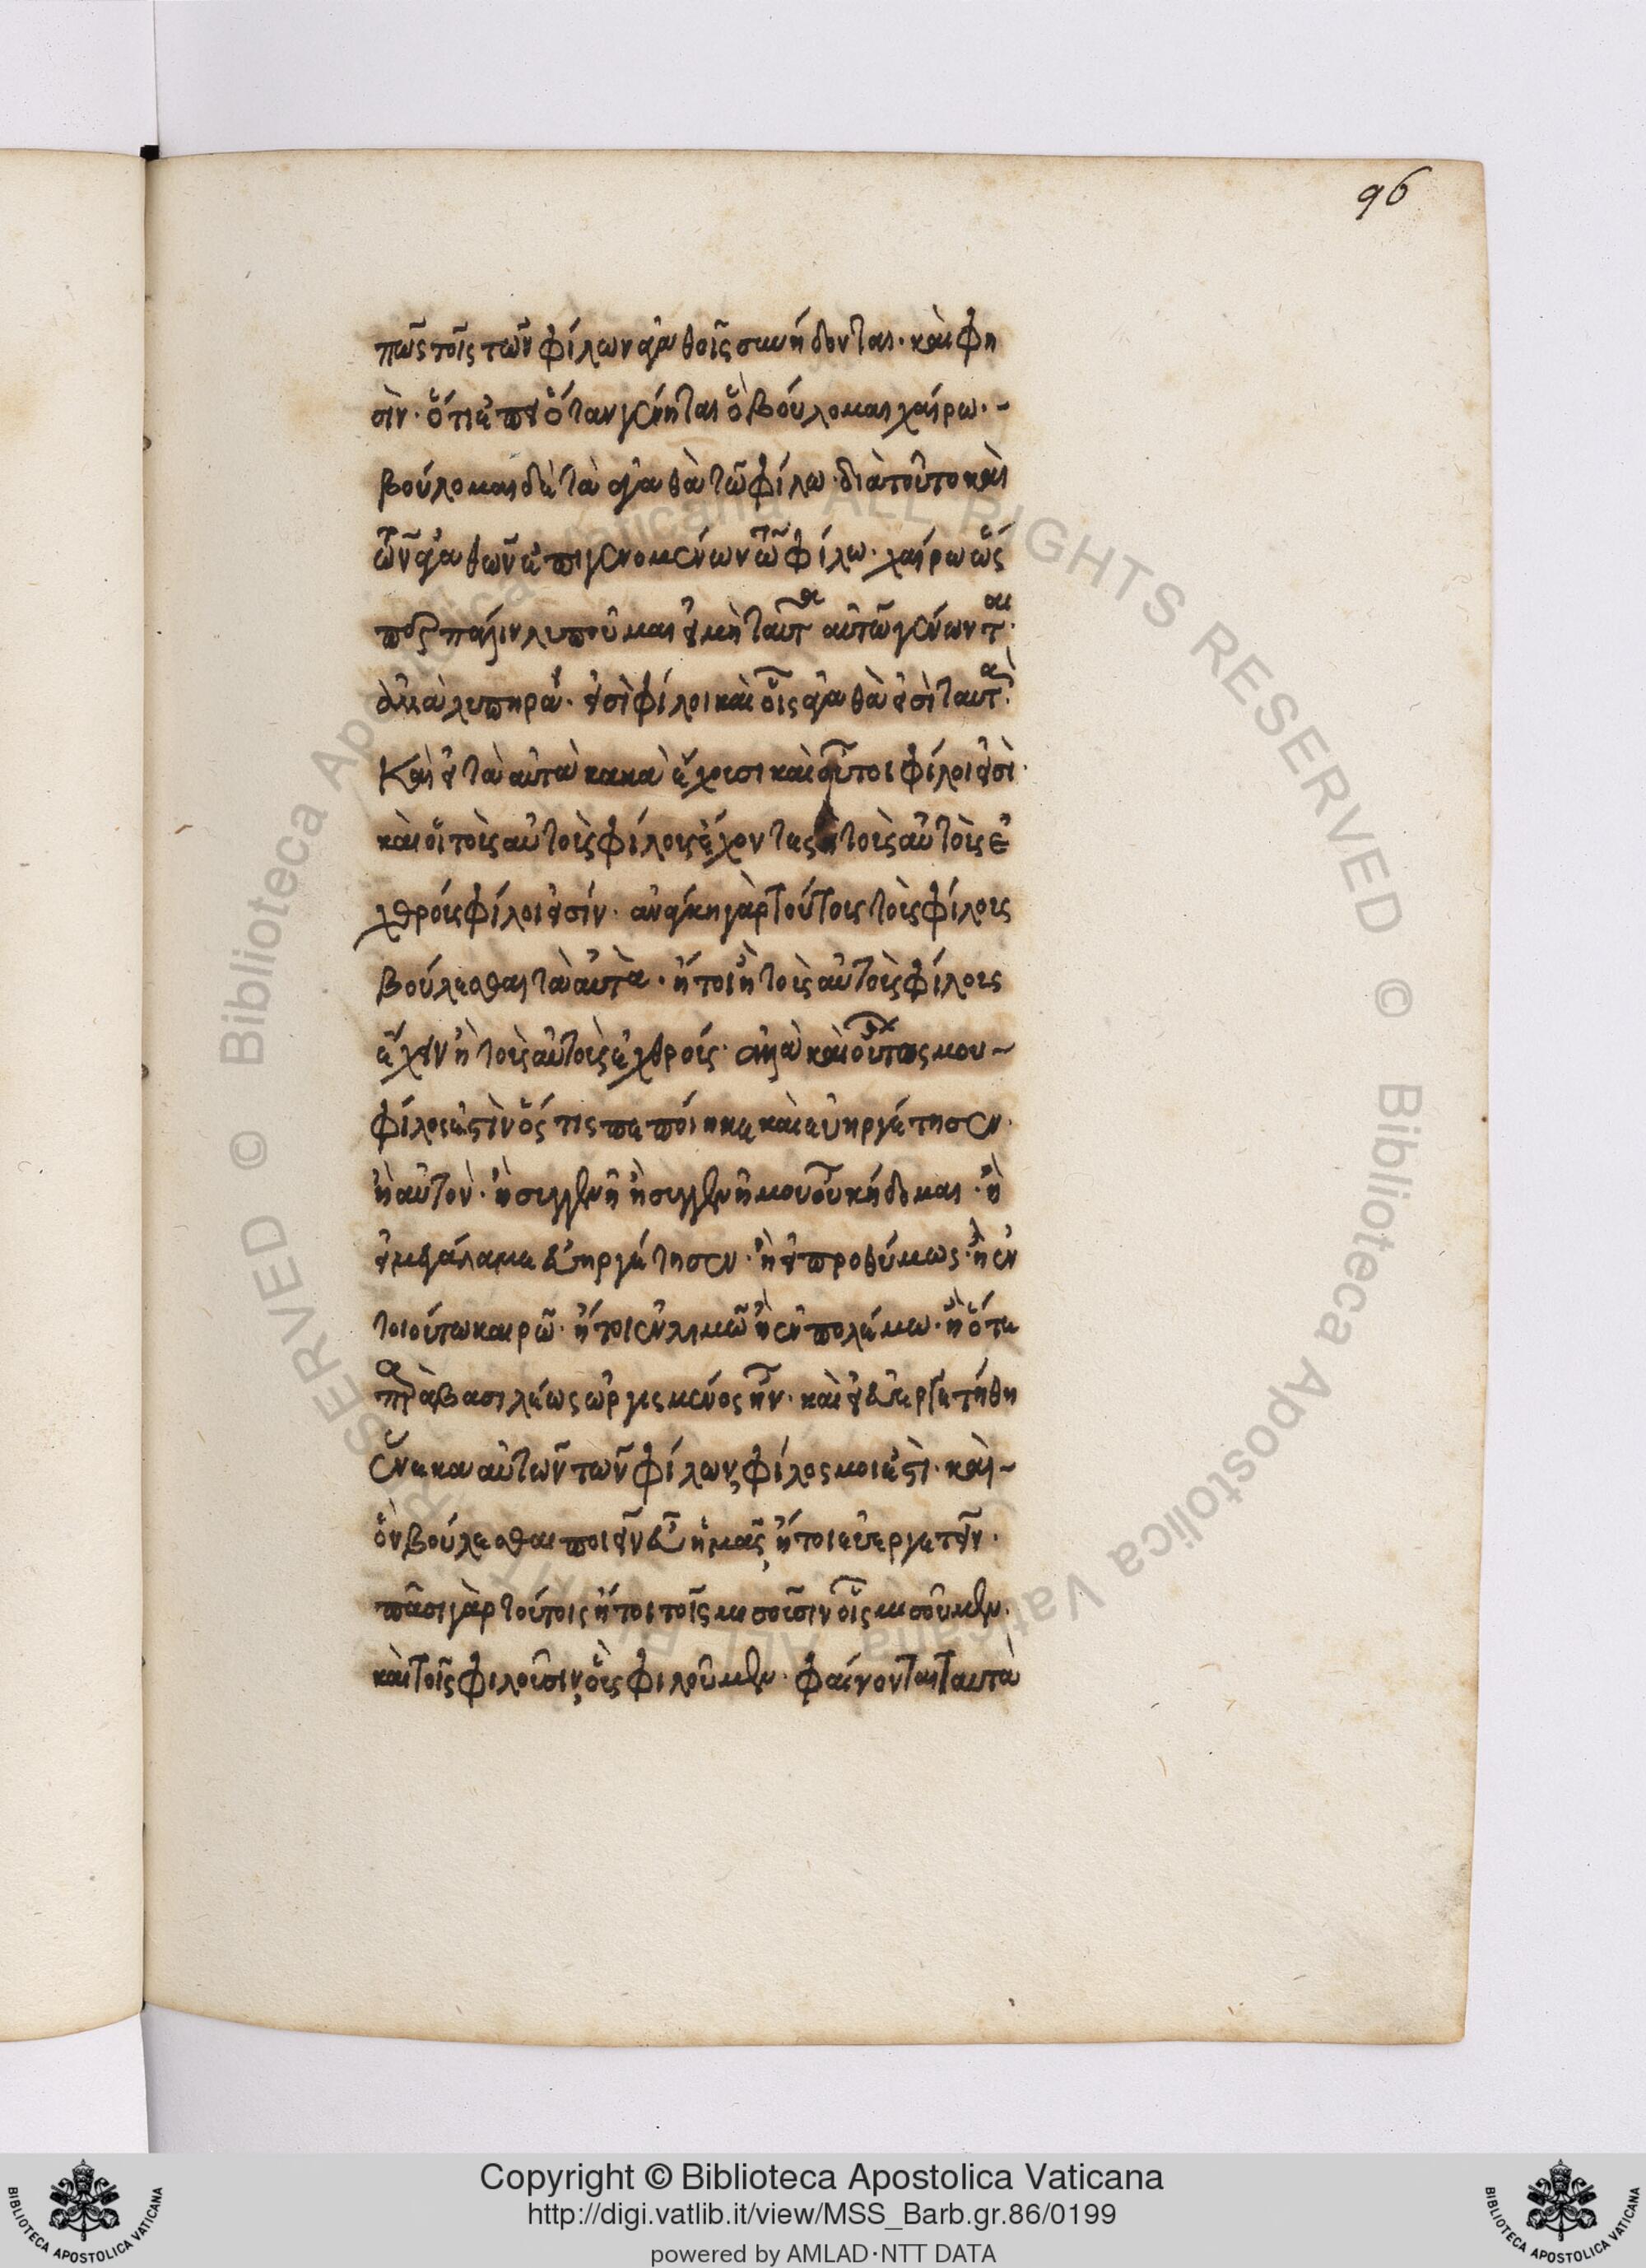 96
πῶς τοῖς τῶν φίλων ἀγαθοῖς συνήδονται· καὶ φη
σὶν· ὅτι ἐπεὶ ὅταν γένηται ὃ βούλομαι χαίρω·
βούλομαι δὲ τὰ ἀγαθὰ τῶ φίλω· διὰ τοῦτο καὶ
τῶν ἀγαθῶν ἐπιγενομένων τῶ φίλω· χαίρω ὥς
περ πάλιν λυποῦμαι εἰ μὴ ταῦτα αὐτῶ γένωνται·
ἀλλὰ λυπηρά· εἰσὶ φίλοι καὶ οἷς ἀγαθὰ εἰσὶ ταυτὰ·
Καὶ εἰ τὰ αὐτὰ κακὰ ἔχουσι καὶ οὗτοι φίλοι εἰσὶ·
καὶ οἱ τοὺς αὐτοὺς φίλους ἔχοντες ἢ τοὺς αὐτοὺς ἐ
χθροὺς φίλοι εἰσίν· ἀνάγκη γὰρ τούτους τοὺς φίλους
βούλεσθαι τὰ αὐτὰ· ἤτοι ἢ τοὺς αὐτοὺς φίλους
ἔχειν ἢ τοὺς αὐτοὺς ἐχθρούς· ἀλλὰ καὶ οὗτος μου
φίλος ἐστὶν ὅς τις πεποίηκε καὶ εὐηργέτησεν·
ἢ αὐτὸν· ἢ συγγενῆ ἢ συγγενῆ μου οὗ κήδομαι· ἢ
εἰ μεγάλα με εὐηργέτησεν· ἢ εἰ προθύμως· ἢ ἐν
τοιούτω καιρῶ· ἤτοι ἐν λιμῶ ἢ ἐν πολέμω· ἢ ὅτε
παρὰ βασιλέως ὠργισμένος ἦν· καὶ εἰ εὐεργετήθη
ἕνεκα αὐτῶν τῶν φίλων, φίλος μοι ἐστὶ· καὶ
ὃν βούλεσθαι ποιεῖν εὖ ἡμᾶς, ἤτοι εὐεργετεῖν·
πᾶσι γὰρ τούτοις ἤτοι τοῖς μισοῦσιν οὓς μισοῦμεν·
καὶ τοῖς φιλοῦσιν, οὓς φιλοῦμεν· φαίνονται ταυτὰ
Copyright © Biblioteca Apostolica Vaticana
http://digi.vatlib.it/view/MSS_Barb.gr.86/0199
powered by AMLAD·NTT DATA
BIBLIOTECA APOSTOLICA VATICANA
BIBLIOTECA APOSTOLICA VATICANA
© Biblioteca Apostolica Vaticana ALL RIGHTS RESERVED
© Biblioteca Apostolica Vaticana ALL RIGHTS RESERVED